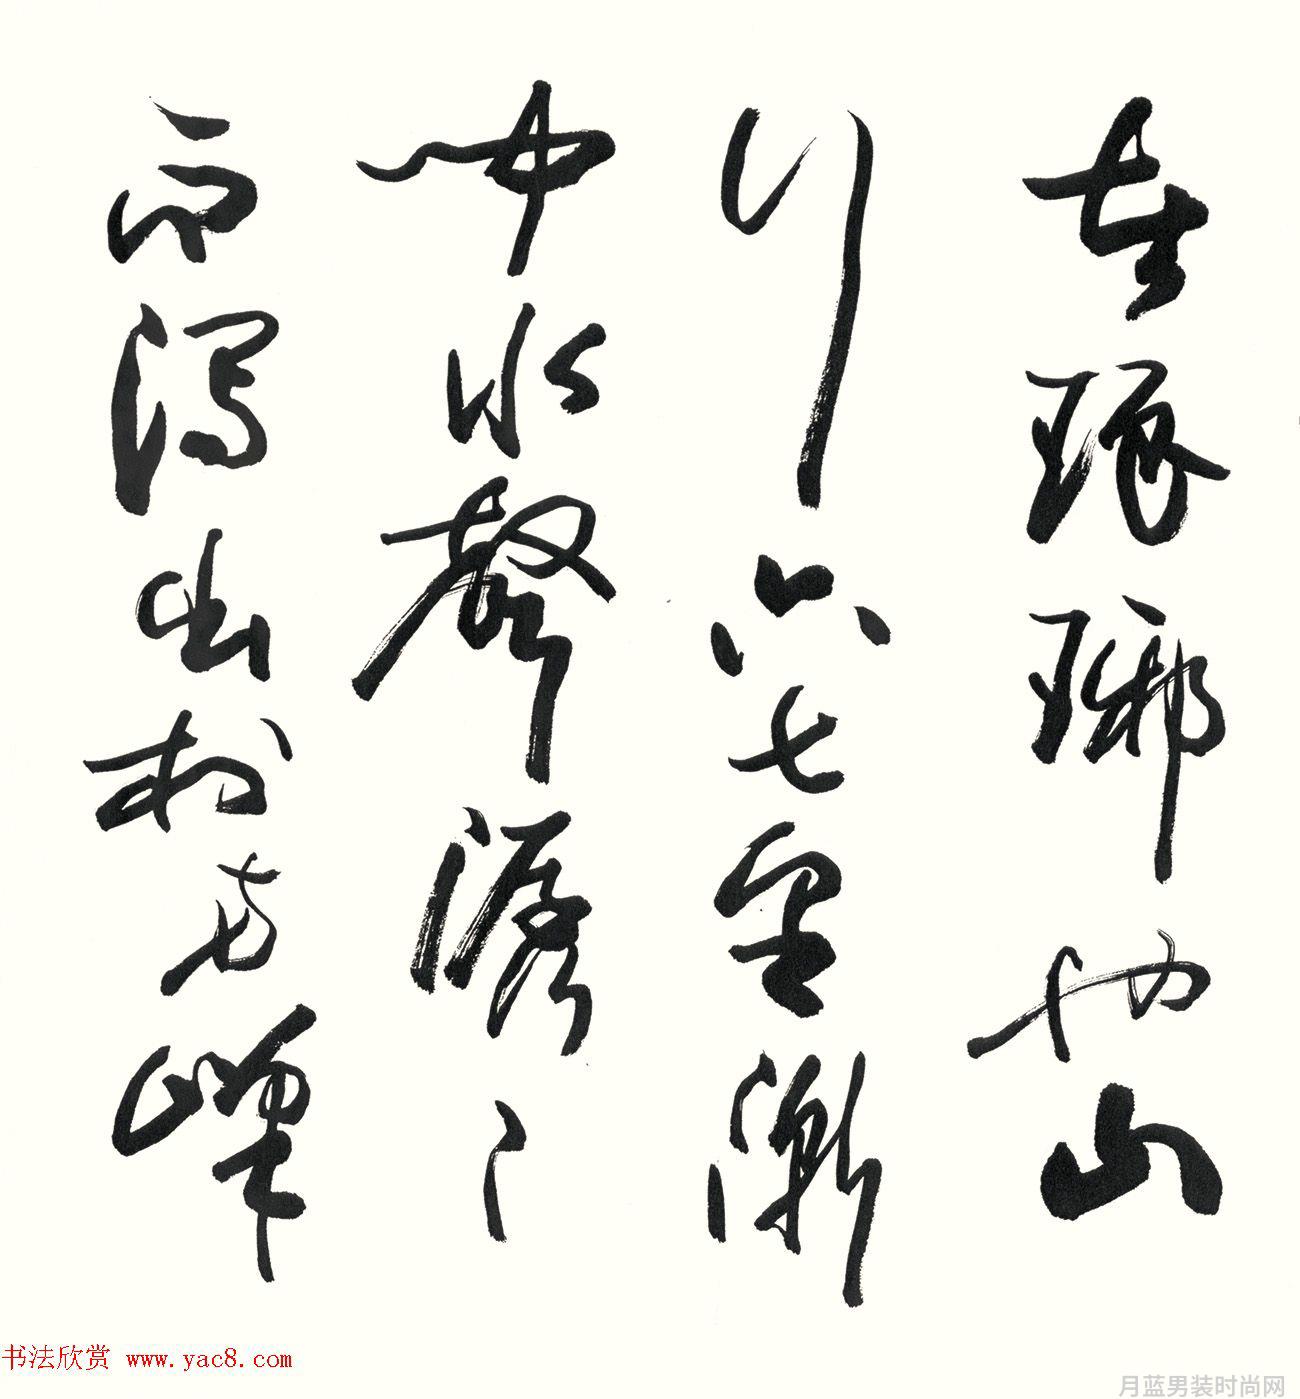 者琅琊也山
行六七里漸
聞水聲潺〻
而瀉出於兩峰
书法欣赏 www.yac8.com
月蓝男装时尚网